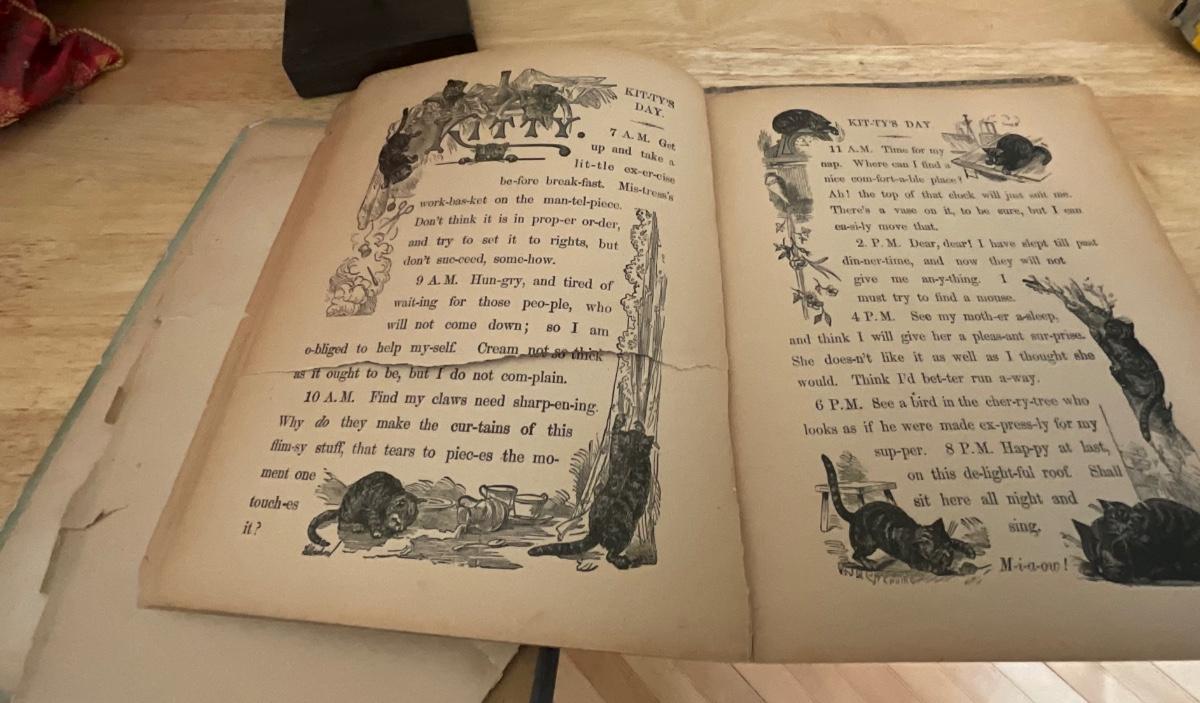 KITTY.
KIT-TY'S
DAY.
7 A.M. Get
up and take a
lit-tle ex-er-cise
be-fore break-fast. Mis-tress's
work-bas-ket on the man-tel-piece.
Don't think it is in prop-er or-der,
and try to set it to rights, but
don't suc-ceed, some-how.
9 A.M. Hun-gry, and tired of
wait-ing for those peo-ple, who
will not come down; so I am
o-bliged to help my-self. Cream not so thick
as it ought to be, but I do not com-plain.
10 A.M. Find my claws need sharp-en-ing.
Why do they make the cur-tains of this
flim-sy stuff, that tears to piec-es the mo-
ment one
touch-es
it?
KIT-TY'S DAY
11 A.M. Time for my
nap. Where can I find a
nice com-fort-a-ble place?
Ah! the top of that clock will just suit me.
There's a vase on it, to be sure, but I can
ea-si-ly move that.
2. P.M. Dear, dear! I have slept till past
din-ner-time, and now they will not
give me an-y-thing. I
must try to find a mouse.
4 P.M. See my moth-er a-sleep,
and think I will give her a pleas-ant sur-prise.
She does-n't like it as well as I thought she
would. Think I'd bet-ter run a-way.
6 P.M. See a bird in the cher-ry-tree who
looks as if he were made ex-press-ly for my
sup-per. 8 P.M. Hap-py at last,
on this de-light-ful roof. Shall
sit here all night and
sing,
M-i-a-ow!